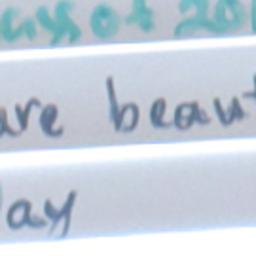 ass of 201
are beaut
lay